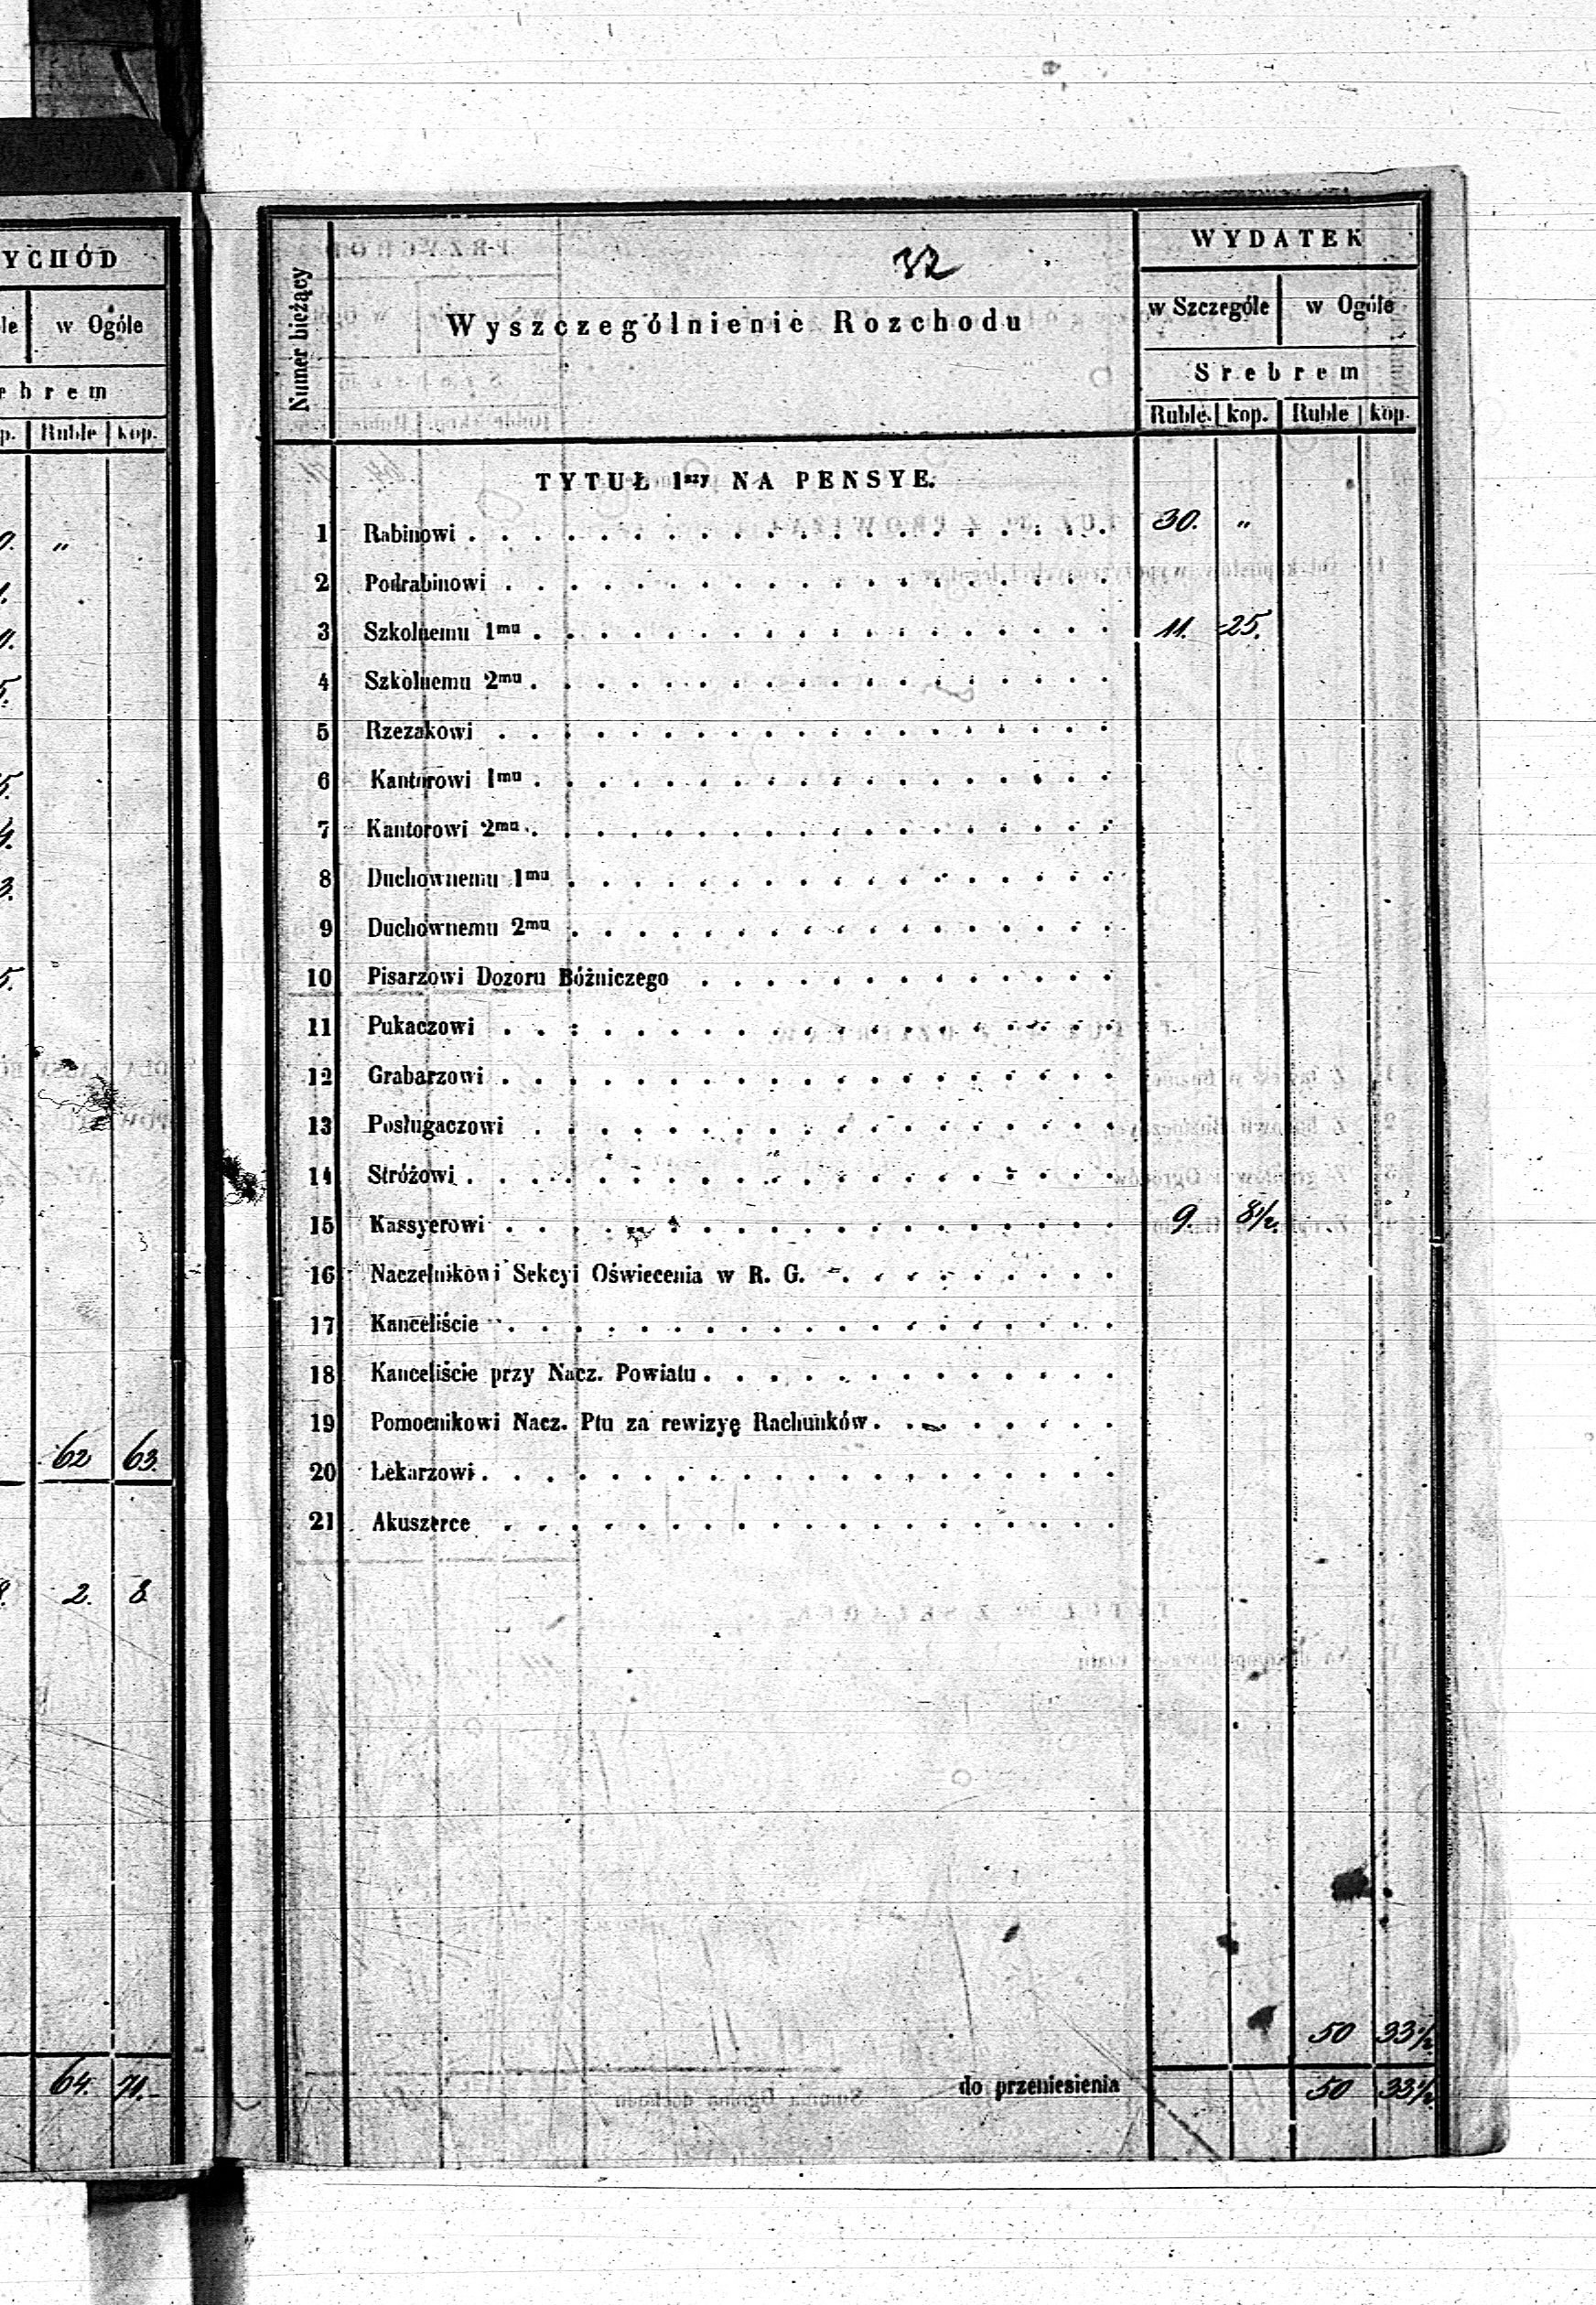 YCHÓD
le w Ogóle
ebrem
p. Ruble kop.
0. "
0.
5.
5.
4.
3.
5.
62 63.
2. 8
64. 71.
32
Numer bieżący
Wyszczególnienie Rozchodu
WYDATEK
w Szczególe w Ogóle
Srebrem
Ruble kop. Ruble kop.
TYTUŁ 1szy NA PENSYE.
1 Rabinowi . . . 30. "
2 Podrabinowi . . .
3 Szkolnemu 1mu . . . 11. 25.
4 Szkolnemu 2mu . . .
5 Rzezakowi . . .
6 Kantorowi 1mu . . .
7 Kantorowi 2mu . . .
8 Duchownemu 1mu . . .
9 Duchownemu 2mu . . .
10 Pisarzowi Dozoru Bóżniczego . . .
11 Pukaczowi . . .
12 Grabarzowi . . .
13 Posługaczowi . . .
14 Stróżowi . . .
15 Kassyerowi . . . 9. 8½.
16 Naczelnikowi Sekcyi Oświecenia w R. G. . . .
17 Kanceliście . . .
18 Kanceliście przy Nacz. Powiatu . . .
19 Pomocnikowi Nacz. Ptu za rewizyę Rachunków . . .
20 Lekarzowi . . .
21 Akuszerce . . .
50 33½
do przeniesienia 50 33½